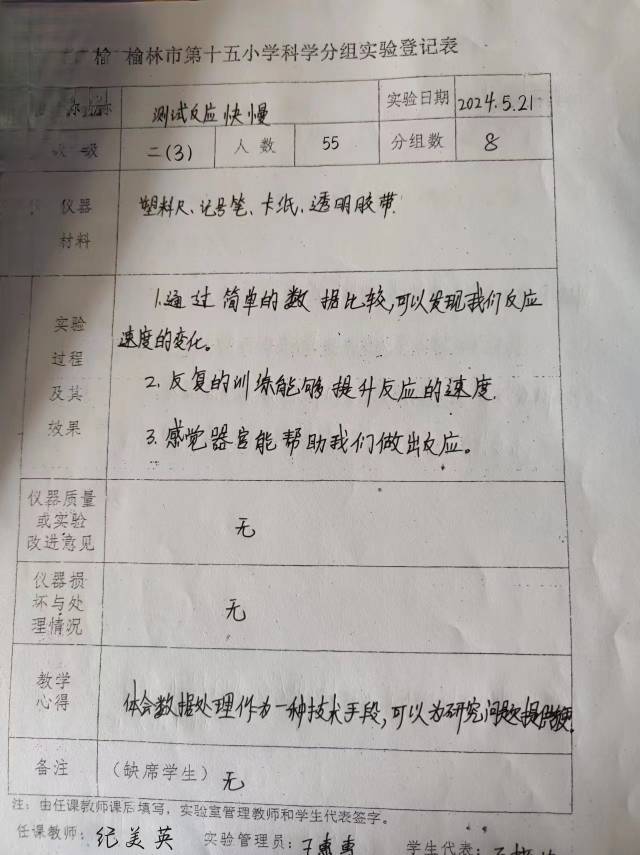 榆 榆林市第十五小学科学分组实验登记表
测试反应快慢 实验日期 2024.5.21
级 二(3) 人数 55 分组数 8
仪器材料 塑料尺、记号笔、卡纸、透明胶带.
实验过程及其效果
1.通过简单的数据比较,可以发现我们反应
速度的变化。
2.反复的训练能够提升反应的速度.
3.感觉器官能帮助我们做出反应。
仪器质量或实验改进意见 无
仪器损坏与处理情况 无
教学心得 体会数据处理作为一种技术手段,可以为研究问题提供
备注 (缺席学生) 无
注:由任课教师课后填写,实验室管理教师和学生代表签字。
任课教师:纪美英 实验管理员:王惠惠 学生代表: